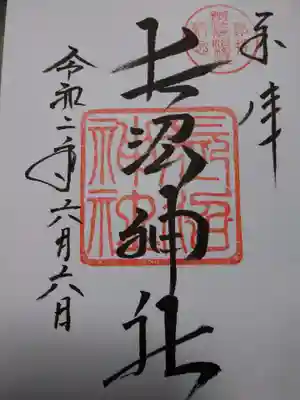 奉拝
長沼神社
長沼
神社
令和二年六月六日